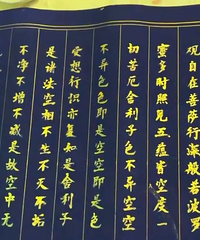 观自在菩萨行深般若波罗
蜜多时照見五蕴皆空度一
切苦厄舍利子色不异空空
不异色色即是空空即是色
受想行识亦复如是舍利子
是诸法空相不生不灭不垢
不净不增不减是故空中无